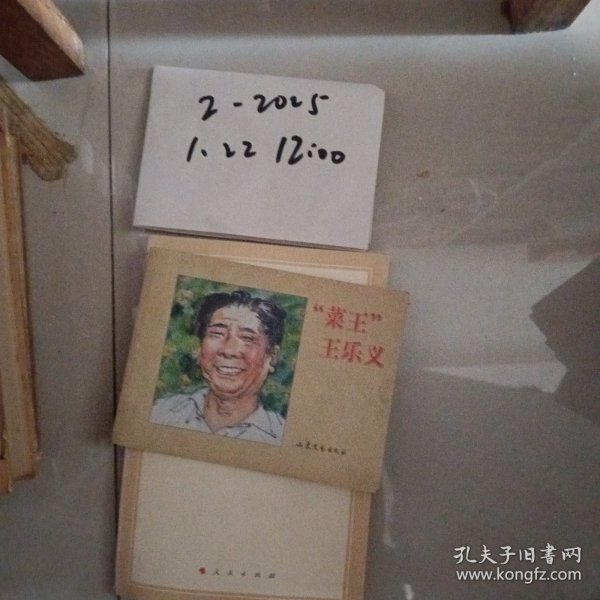 2-2025
1.22 12:00
“菜王”
王乐义
山东文艺出版社
人民出版社
孔夫子旧书网
www.kongfz.com